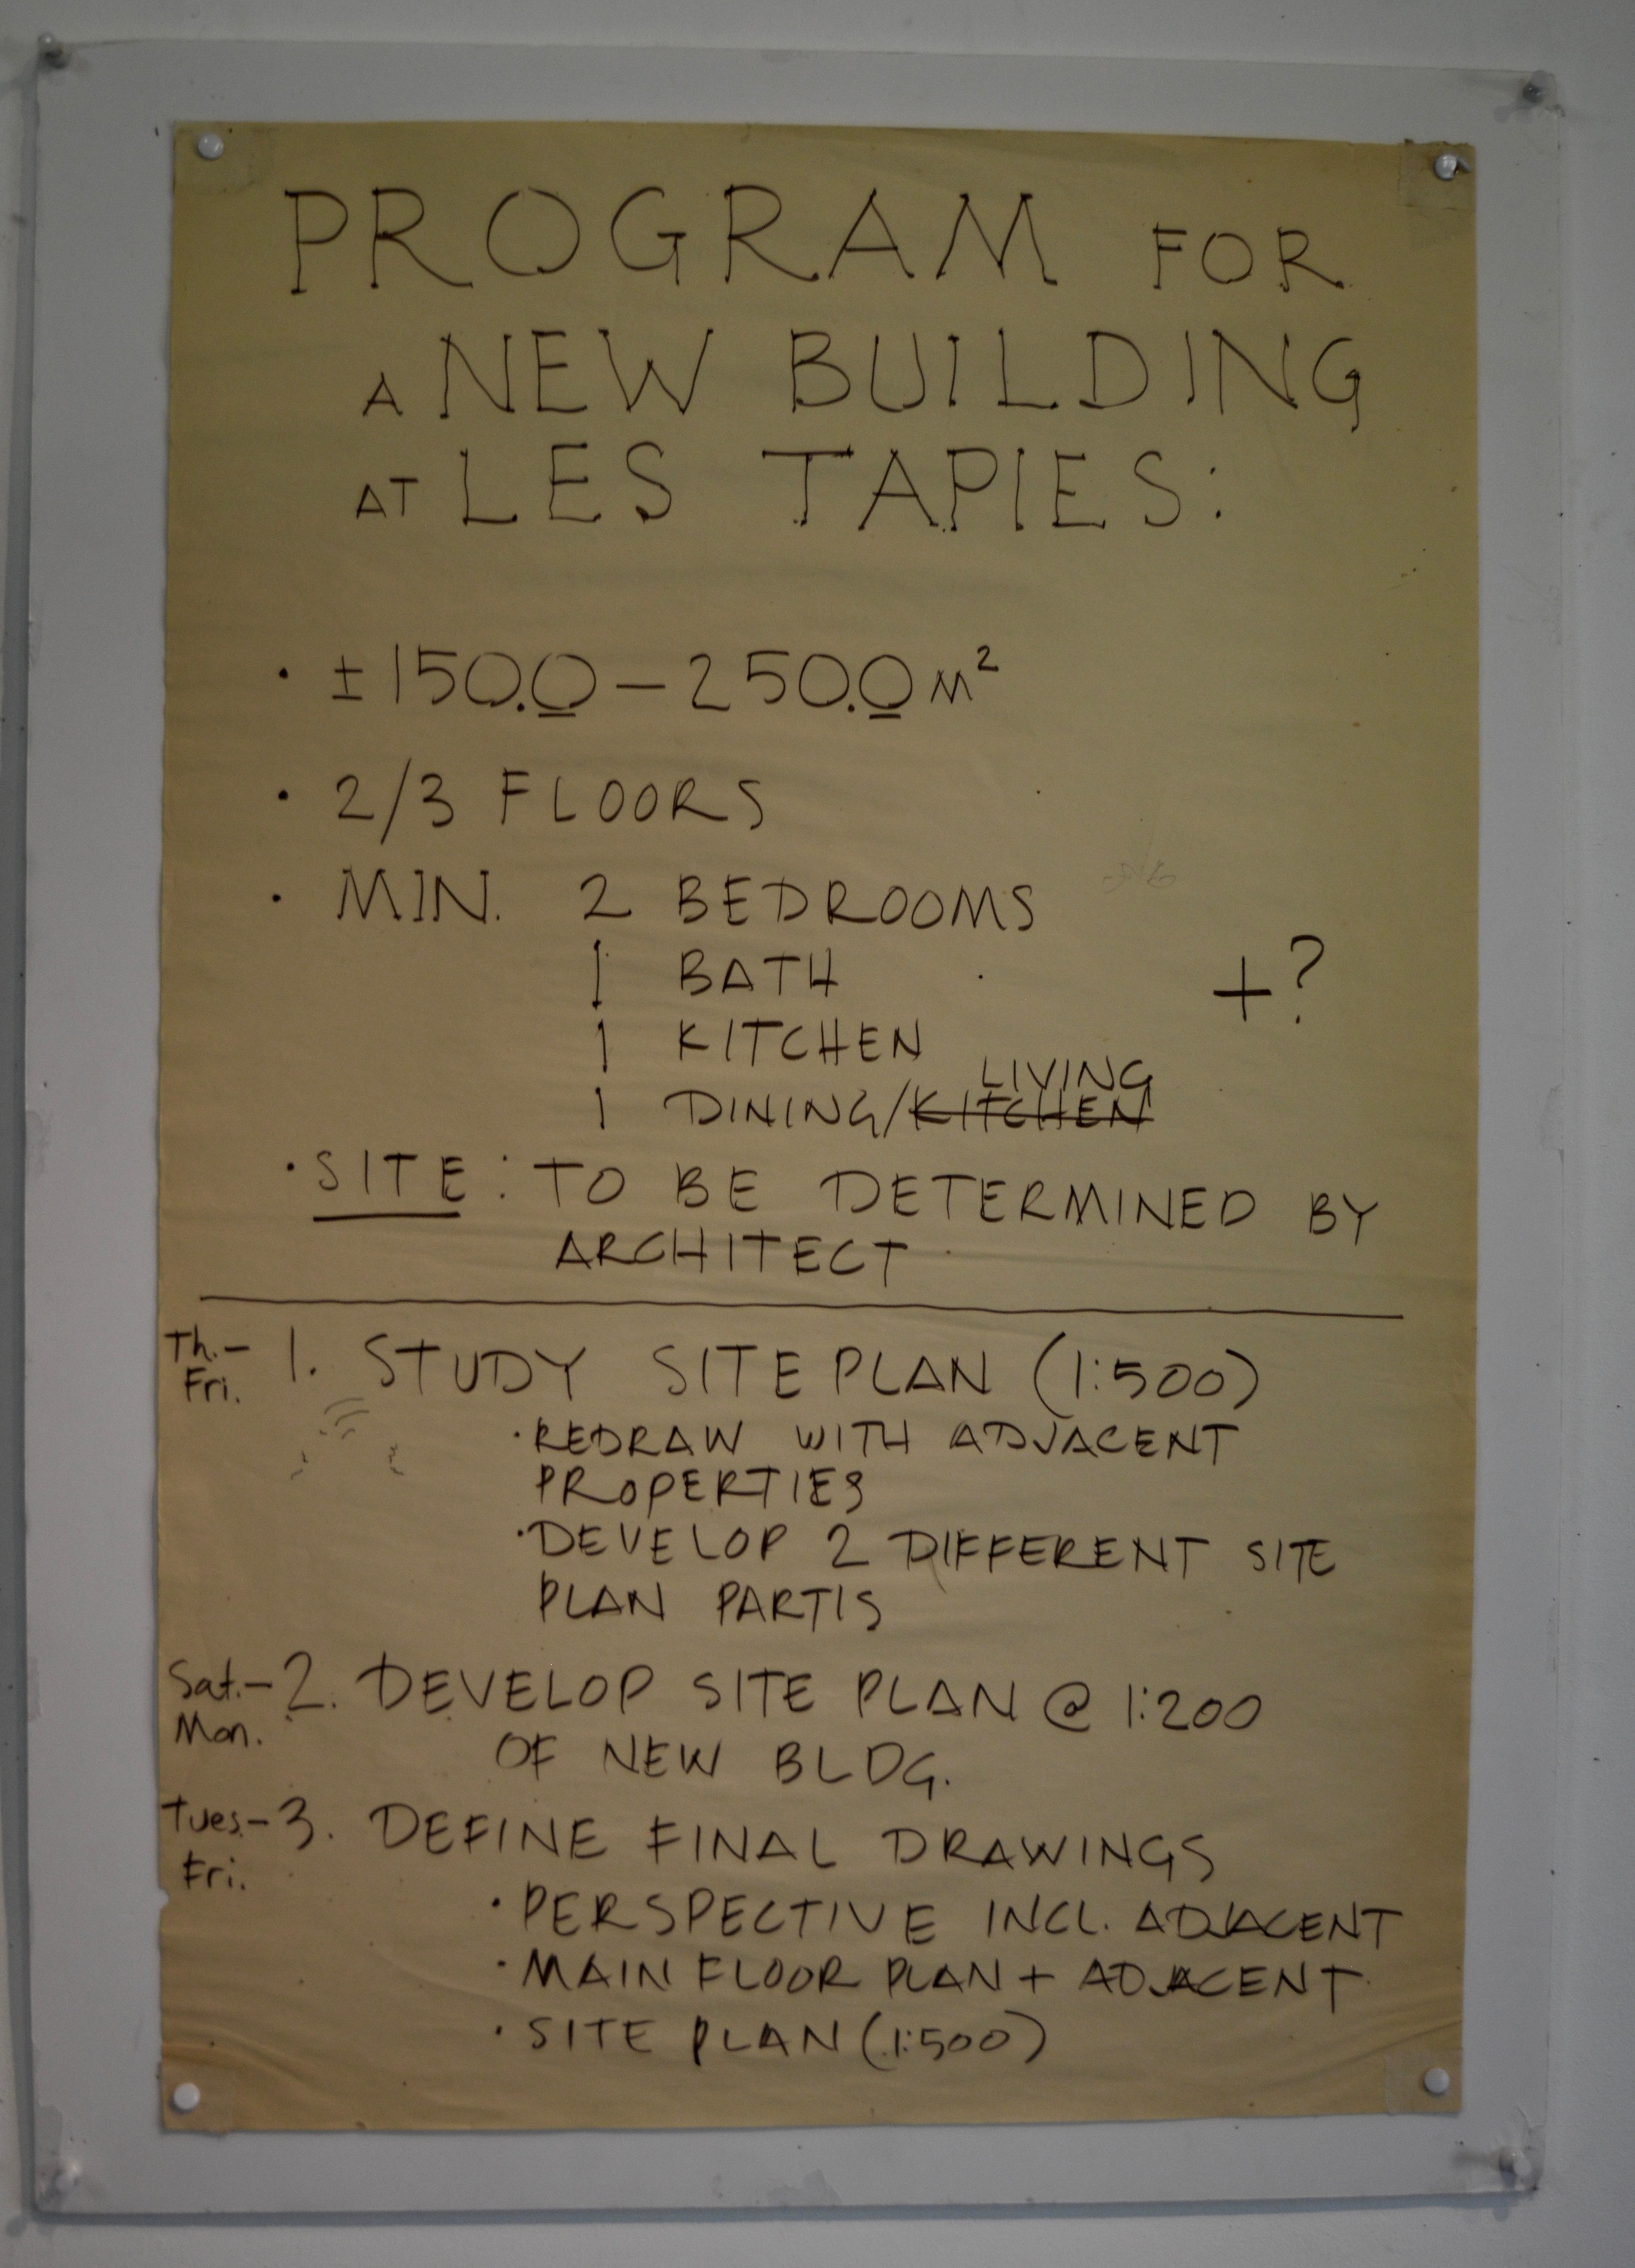 PROGRAM FOR
A NEW BUILDING
AT LES TAPIES:
· ±150.0 – 250.0 M²
· 2/3 FLOORS
· MIN. 2 BEDROOMS
1 BATH
+?
1 KITCHEN
LIVING
1 DINING/KITCHEN
· SITE: TO BE DETERMINED BY
ARCHITECT
Th.– 1. STUDY SITE PLAN (1:500)
Fri.
· REDRAW WITH ADJACENT
PROPERTIES
· DEVELOP 2 DIFFERENT SITE
PLAN PARTIS
Sat.– 2. DEVELOP SITE PLAN @ 1:200
Mon.
OF NEW BLDG.
Tues.– 3. DEFINE FINAL DRAWINGS
Fri.
· PERSPECTIVE INCL. ADJACENT
· MAIN FLOOR PLAN + ADJACENT
· SITE PLAN (1:500)